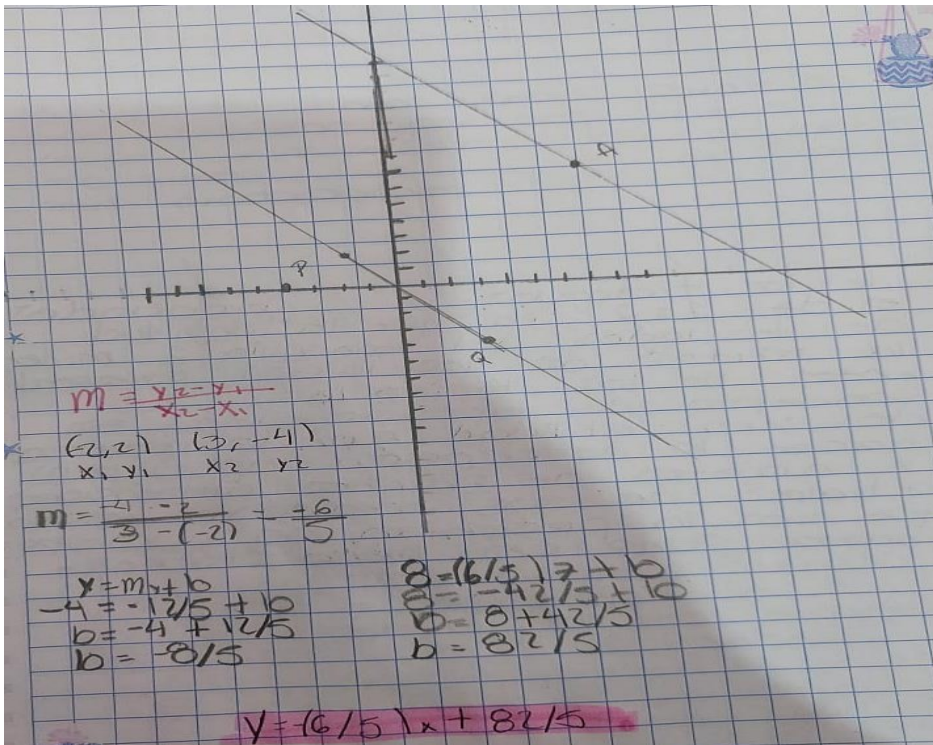 A
P
Q
m = y2-y1/x2-x1
(-2,2) (3,-4)
x1 y1 x2 y2
m = -4-2/3-(-2) = -6/5
y=mx+b
-4=-12/5+b
b=-4+12/5
b=-8/5
8=-(6/5)7+b
8=-42/5+b
b=8+42/5
b=82/5
y=-(6/5)x+82/5